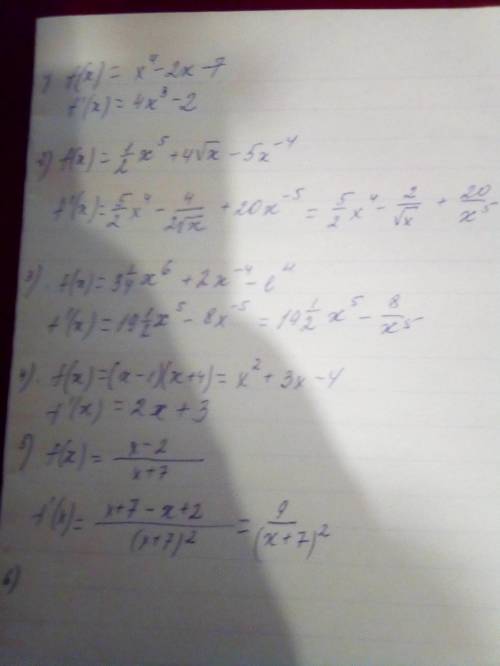 1) f(x) = x⁴ - 2x - 7
f'(x) = 4x³ - 2
2) f(x) = 1/2 x⁵ + 4√x - 5x⁻⁴
f'(x) = 5/2 x⁴ - 4/(2√x) + 20x⁻⁵ = 5/2 x⁴ - 2/√x + 20/x⁵
3) f(x) = 3 1/4 x⁶ + 2x⁻⁴ - e⁴
f'(x) = 19 1/2 x⁵ - 8x⁻⁵ = 19 1/2 x⁵ - 8/x⁵
4) f(x) = (x-1)(x+4) = x² + 3x - 4
f'(x) = 2x + 3
5) f(x) = (x-2)/(x+7)
f'(x) = (x+7-x+2)/(x+7)² = 9/(x+7)²
6)